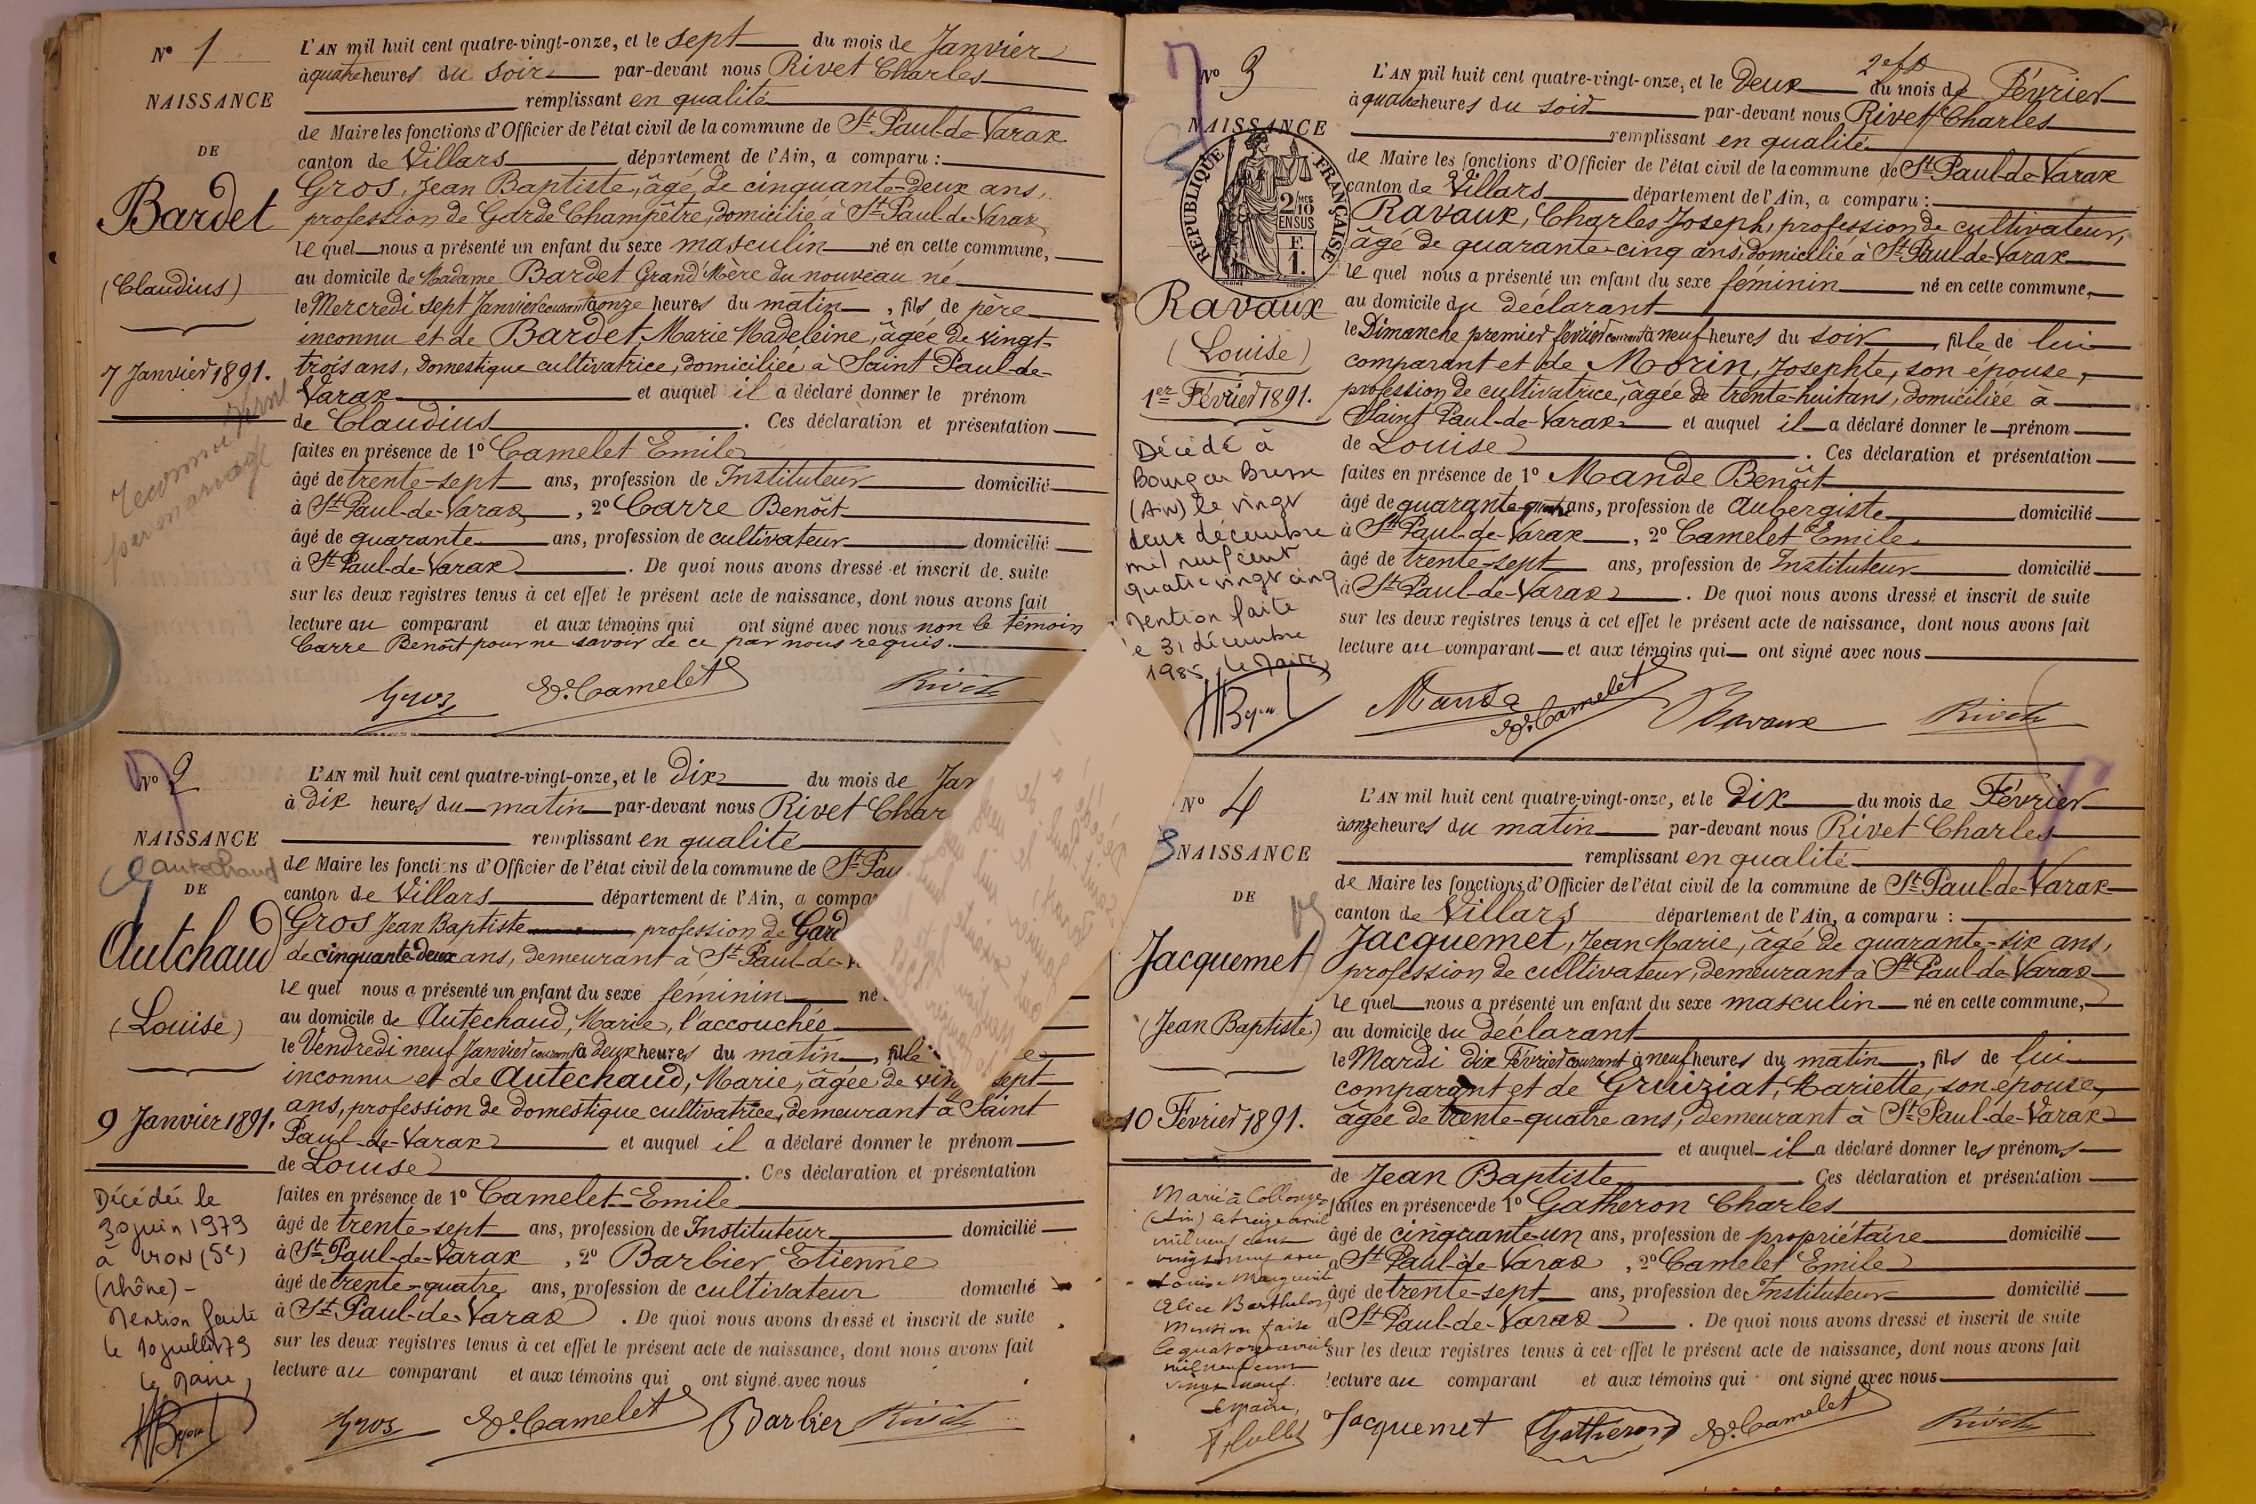 N° 1
NAISSANCE
DE
Bardet
(Claudius)
7 Janvier 1891.
reconnu
par mariage
L'AN mil huit cent quatre-vingt-onze, et le sept du mois de Janvier
à quatre heures du soir par-devant nous Rivet Charles
remplissant en qualité
de Maire les fonctions d'Officier de l'état civil de la commune de St Paul-de-Varax
canton de Villars département de l'Ain, a comparu :
Gros, Jean Baptiste, âgé de cinquante-deux ans,
profession de Garde Champêtre, domicilié à St Paul-de-Varax
le quel nous a présenté un enfant du sexe masculin né en cette commune,
au domicile de Madame Bardet Grand'Mère du nouveau né
le Mercredi sept Janvier courant à onze heures du matin, fils de père
inconnu et de Bardet, Marie Madeleine, âgée de vingt-
trois ans, domestique cultivatrice, domiciliée à Saint Paul-de-
Varax et auquel il a déclaré donner le prénom
de Claudius. Ces déclaration et présentation
faites en présence de 1° Camelet Emile
âgé de trente-sept ans, profession de Instituteur domicilié
à St Paul-de-Varax, 2° Carre Benoît
âgé de quarante ans, profession de cultivateur domicilié
à St Paul-de-Varax. De quoi nous avons dressé et inscrit de suite
sur les deux registres tenus à cet effet le présent acte de naissance, dont nous avons fait
lecture au comparant et aux témoins qui ont signé avec nous non le témoin
Carre Benoît pour ne savoir de ce par nous requis.
Gros E. Camelet Rivet
N° 2
NAISSANCE
Autechaud
DE
Autchaud
(Louise)
9 Janvier 1891.
Décédée le
30 juin 1979
à LYON (5e)
(Rhône) -
Mention faite
le 10 juillet 79
Le Maire,
L'AN mil huit cent quatre-vingt-onze, et le dix du mois de Jan
à dix heures du matin par-devant nous Rivet Char
remplissant en qualité
de Maire les fonctions d'Officier de l'état civil de la commune de St Pau
canton de Villars département de l'Ain, a compa
Gros Jean Baptiste profession de Gard
de cinquante-deux ans, demeurant à St Paul-de-V
le quel nous a présenté un enfant du sexe féminin né
au domicile de Autechaud, Marie, l'accouchée
le Vendredi neuf Janvier courant à deux heures du matin, fille
inconnu et de Autechaud, Marie, âgée de vingt sept
ans, profession de domestique cultivatrice, demeurant à Saint
Paul-de-Varax et auquel il a déclaré donner le prénom
de Louise. Ces déclaration et présentation
faites en présence de 1° Camelet Emile
âgé de trente-sept ans, profession de Instituteur domicilié
à St Paul-de-Varax, 2° Barbier Etienne
âgé de trente-quatre ans, profession de cultivateur domicilié
à St Paul-de-Varax. De quoi nous avons dressé et inscrit de suite
sur les deux registres tenus à cet effet le présent acte de naissance, dont nous avons fait
lecture au comparant et aux témoins qui ont signé avec nous
Gros E. Camelet Barbier Rivet
N° 3
NAISSANCE
RÉPUBLIQUE FRANÇAISE
2/10
EN SUS
F.
1.
Ravaux
(Louise)
1er Février 1891.
Décédé à
Bourg en Bresse
(Ain) le vingt
deux décembre
mil neuf cent
quatre vingt cinq
Mention faite
le 31 décembre
1985 Le Maire,
L'AN mil huit cent quatre-vingt-onze, et le Deux du mois de Février
à quatre heures du soir par-devant nous Rivet Charles
remplissant en qualité
de Maire les fonctions d'Officier de l'état civil de la commune de St Paul-de-Varax
canton de Villars département de l'Ain, a comparu :
Ravaux, Charles Joseph, profession de cultivateur,
âgé de quarante-cinq ans, domicilié à St Paul-de-Varax
le quel nous a présenté un enfant du sexe féminin né en cette commune,
au domicile du déclarant
le Dimanche premier février courant à neuf heures du soir fille de lui
comparant et de Morin, Josephte, son épouse,
profession de cultivatrice, âgée de trente-huit ans, domiciliée à
Saint Paul-de-Varax et auquel il a déclaré donner le prénom
de Louise. Ces déclaration et présentation
faites en présence de 1° Mande Benoît
âgé de quarante-quatre ans, profession de Aubergiste domicilié
à St Paul-de-Varax, 2° Camelet Emile
âgé de trente-sept ans, profession de Instituteur domicilié
à St Paul-de-Varax. De quoi nous avons dressé et inscrit de suite
sur les deux registres tenus à cet effet le présent acte de naissance, dont nous avons fait
lecture au comparant et aux témoins qui ont signé avec nous
Mande E. Camelet Ravaux Rivet
N° 4
3 NAISSANCE
DE
Jacquemet
(Jean Baptiste)
10 Février 1891.
Marié à Collonges
(Ain) le treize avril
mil neuf cent
vingt neuf avec
Louise Marguerite
Alice Barthelon
Mention faite
le quatorze avril
mil neuf cent
vingt neuf.
Le maire,
L'AN mil huit cent quatre-vingt-onze, et le dix du mois de Février
à onze heures du matin par-devant nous Rivet Charles
remplissant en qualité
de Maire les fonctions d'Officier de l'état civil de la commune de St Paul-de-Varax
canton de Villars département de l'Ain, a comparu :
Jacquemet, Jean Marie, âgé de quarante-six ans,
profession de cultivateur, demeurant à St Paul-de-Varax
le quel nous a présenté un enfant du sexe masculin né en cette commune,
au domicile du déclarant
le Mardi dix Février courant à neuf heures du matin, fils de lui
comparant et de Gruiziat, Mariette, son épouse,
âgée de trente-quatre ans, demeurant à St Paul-de-Varax
et auquel il a déclaré donner les prénoms
de Jean Baptiste Ces déclaration et présentation
faites en présence de 1° Gatheron Charles
âgé de cinquante-un ans, profession de propriétaire domicilié
à St Paul-de-Varax, 2° Camelet Emile
âgé de trente-sept ans, profession de Instituteur domicilié
à St Paul-de-Varax. De quoi nous avons dressé et inscrit de suite
sur les deux registres tenus à cet effet le présent acte de naissance, dont nous avons fait
lecture au comparant et aux témoins qui ont signé avec nous
Jacquemet Gatheron E. Camelet Rivet